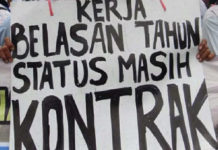 KERJA
BELASAN TAHUN
STATUS MASIH
KONTRAK